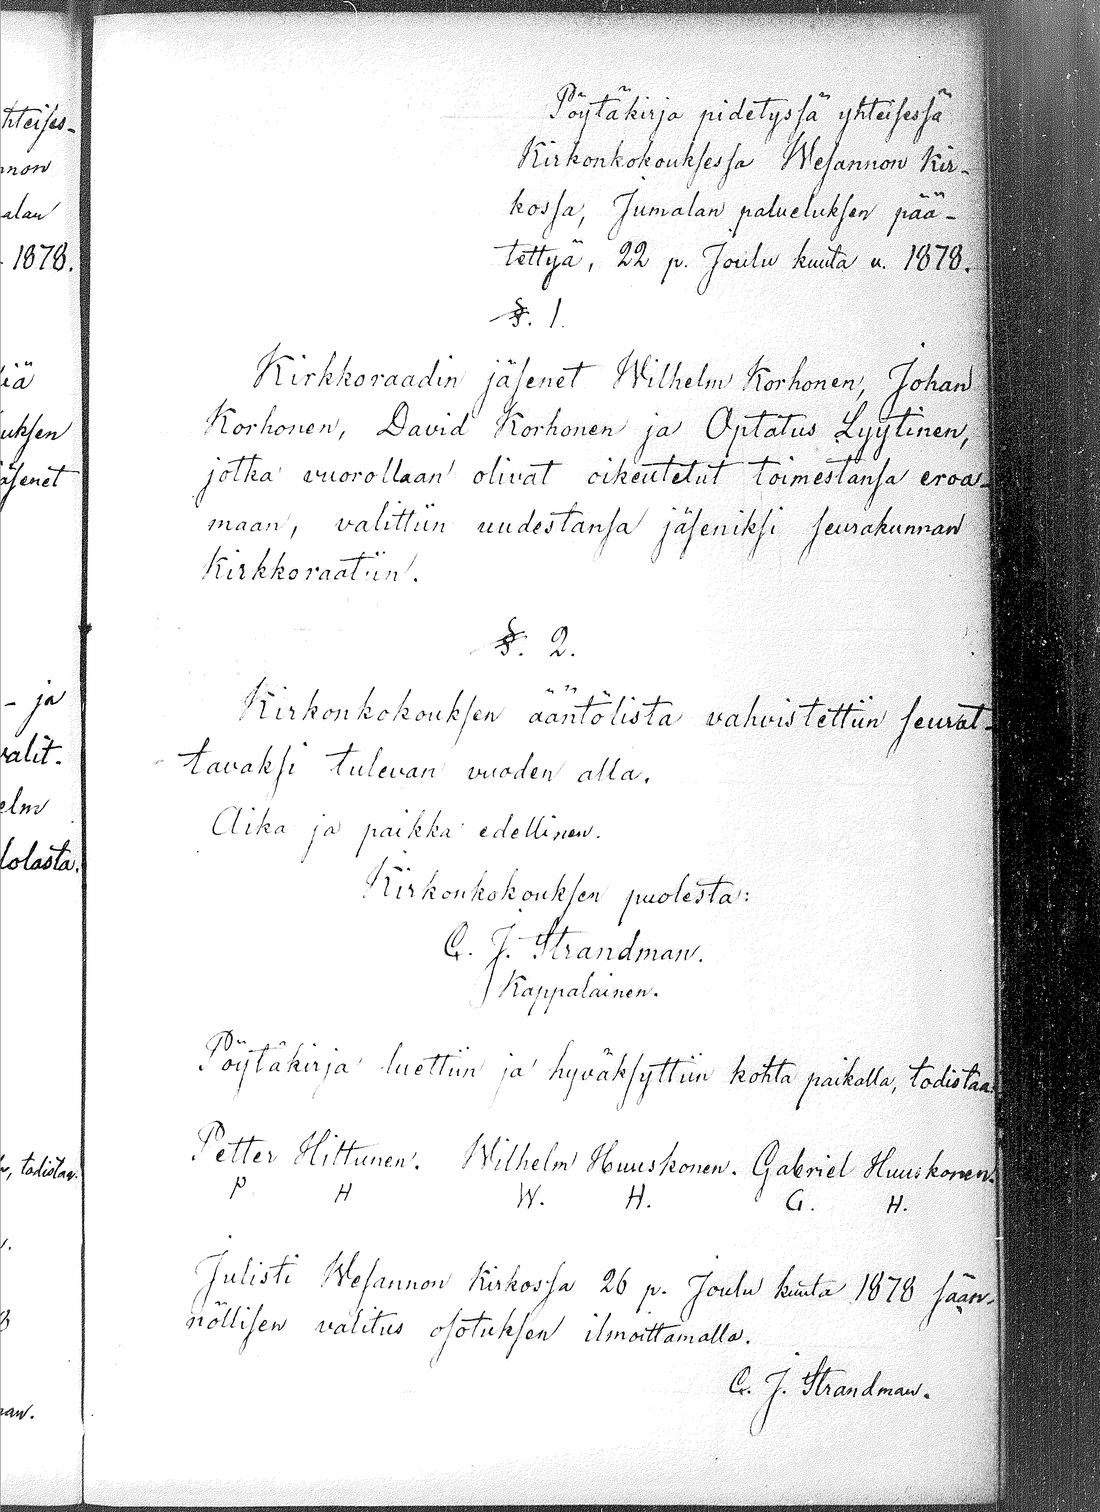 hteises-
nnon
alan
1878.
iä
uksen
äsenet
- ja
valit-
elm
lolasta.
, todistaa.
Pöytäkirja pidetyssä yhteisessä
Kirkonkokouksessa Wesannon Kir-
kossa, Jumalan palveluksen pää-
tettyä, 22 p. Joulu kuuta v. 1878.
§. 1.
Kirkkoraadin jäsenet Wilhelm Korhonen, Johan
Korhonen, David Korhonen ja Optatus Lyytinen,
jotka vuorollaan olivat oikeutetut toimestansa eroa-
maan, valittiin uudestansa jäseniksi seurakunnan
Kirkkoraatiin.
§. 2.
Kirkonkokouksen ääntölista vahvistettiin seurat-
tavaksi tulevan vuoden alla.
Aika ja paikka edellinen.
Kirkonkokouksen puolesta:
C. J. Strandman.
Kappalainen.
Pöytäkirja luettiin ja hyväksyttiin kohta paikalla, todistaa:
Petter Hittunen. Wilhelm Huuskonen. Gabriel Huuskonen.
P H W. H. G. H.
Julisti Wesannon Kirkossa 26 p. Joulu kuuta 1878 sään-
nöllisen valitus osotuksen ilmoittamalla.
C. J. Strandman.